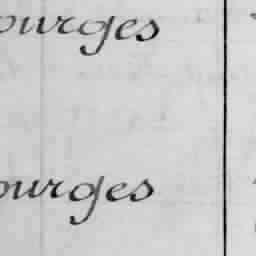 ourges
ourges